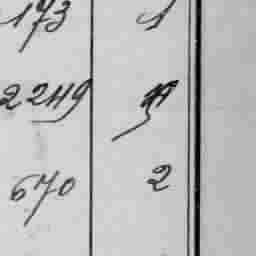 173 1
2249
670 2